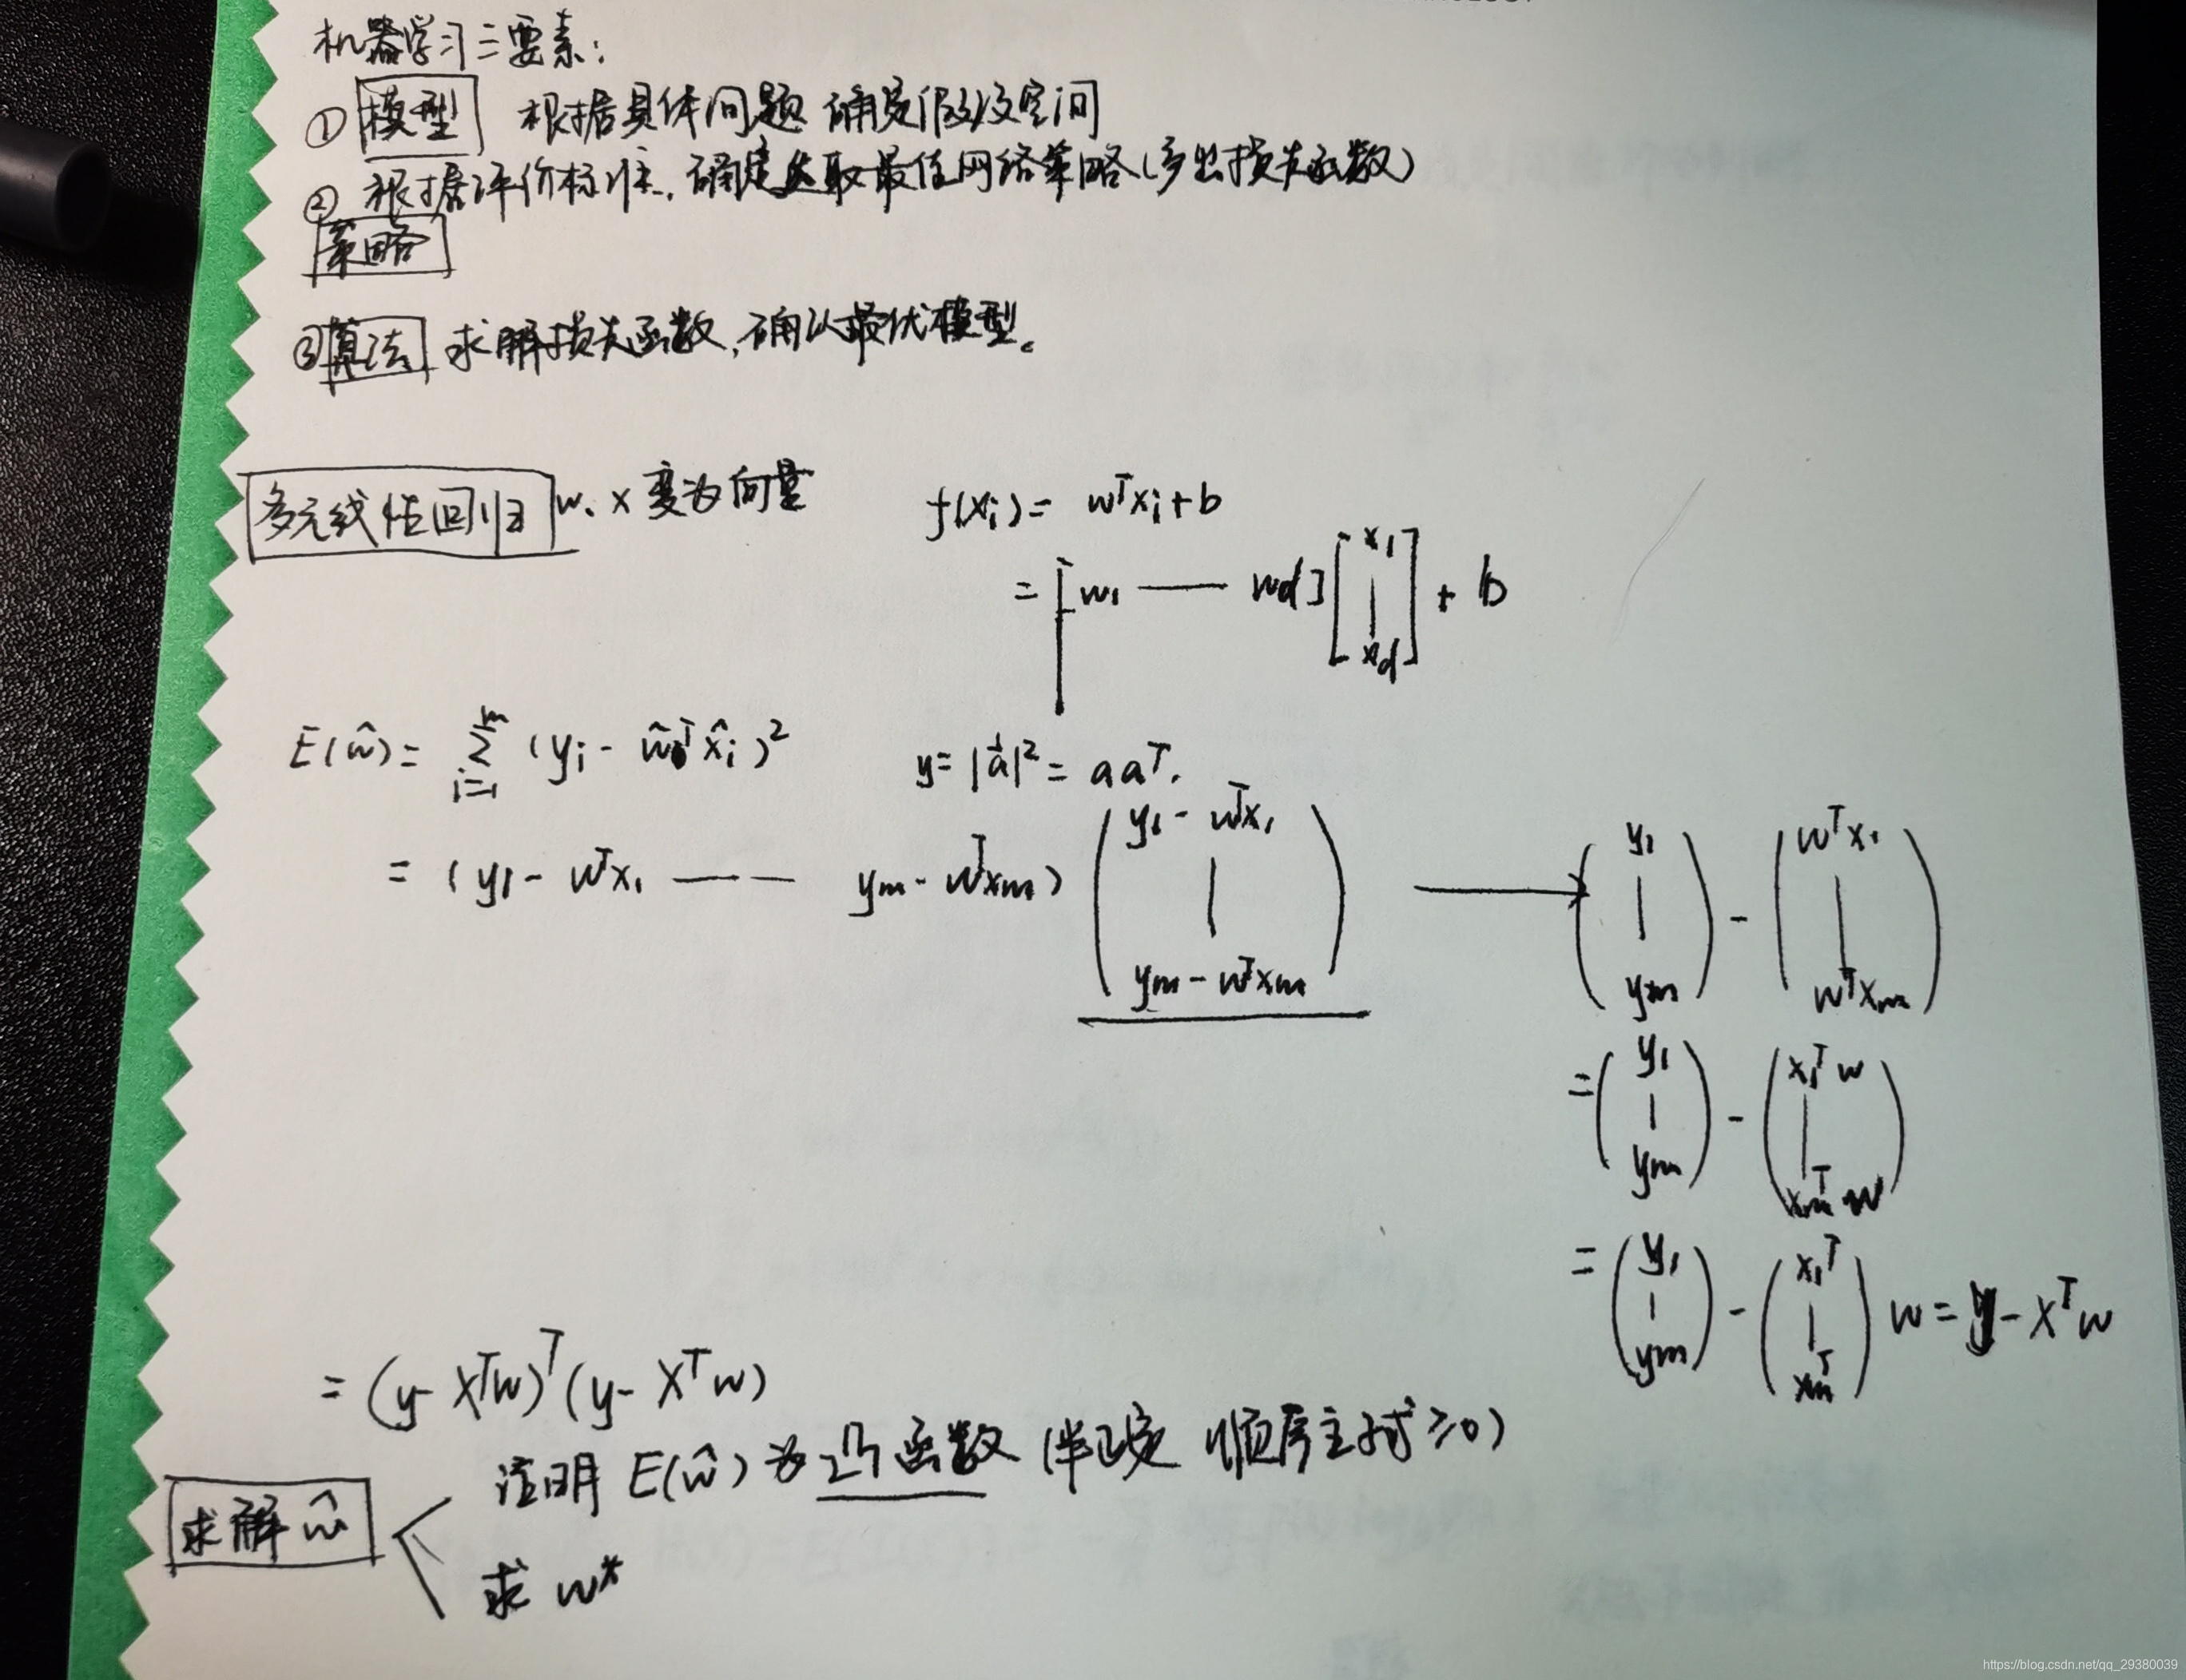 机器学习三要素：
① 模型 根据具体问题 确定假设空间
② 根据评价标准，确定选取最佳网络策略（多出损失函数）
策略
③ 算法 求解损失函数，确认最优模型。
多元线性回归 w、x 变为向量
f(xᵢ) = wᵀxᵢ + b
= [w₁ —— wd] [x₁ | xd] + b
E(ŵ) = Σᵢ₌₁ᵐ (yᵢ - ŵᵀx̂ᵢ)²
y = |a⃗|² = aaᵀ.
= (y₁ - wᵀx₁ —— — ym - wᵀxm) (y₁ - wᵀx₁ | ym - wᵀxm) → (y₁ | ym) - (wᵀx₁ | wᵀxm)
= (y₁ | ym) - (x₁ᵀw | xmᵀw)
= (y₁ | ym) - (x₁ᵀ | xmᵀ) w = y - xᵀw
= (y - xᵀw)ᵀ(y - xᵀw)
求解 ŵ
证明 E(ŵ) 为凸函数（半正定 顺序主子式 ≥0）
求 w*
https://blog.csdn.net/qq_29380039